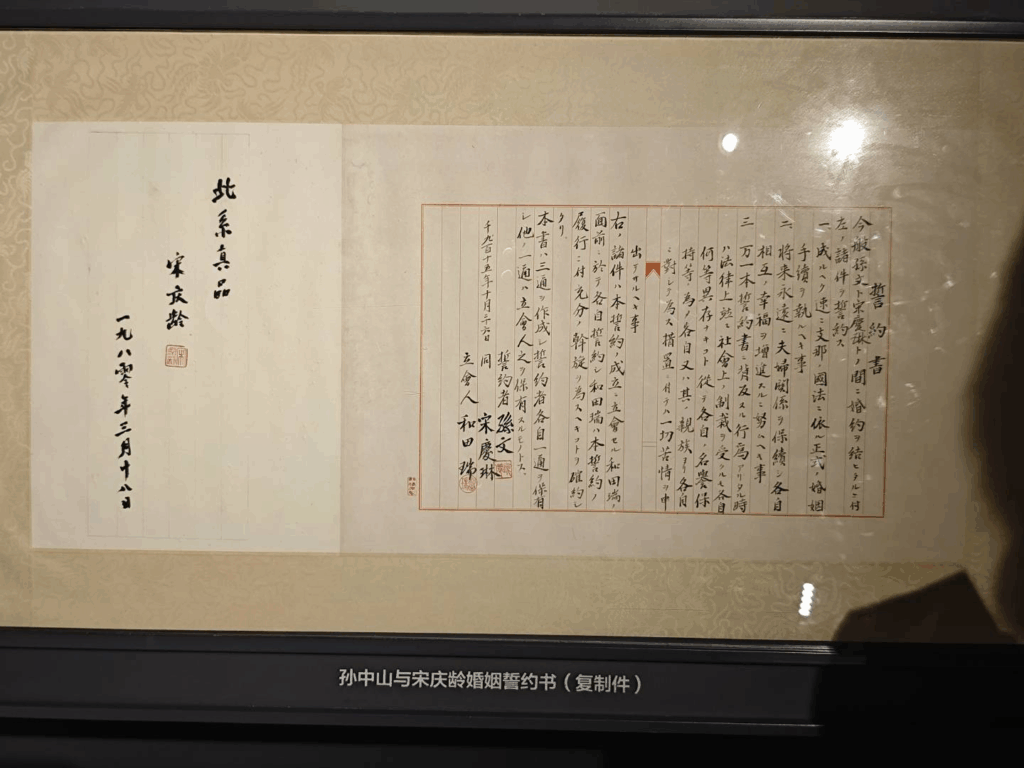 誓約書
今般孫文ト宋慶琳トノ間ニ婚約ヲ結ヒタルニ付
左ノ諸件ヲ誓約ス
一 成ルヘク速ニ支那ノ國法ニ依ル正式ノ婚姻
手續ヲ執ルヘキ事
二 将来永遠ニ夫婦関係ヲ保續シ各自
相互ノ幸福ヲ増進スルニ努ムヘキ事
三 万一本誓約書ニ背反スル行為アリタル時
ハ法律上並ニ社會上ノ制裁ヲ受クルモ各自
何等異存ナキコト従テ各自ノ名譽保
持等ノ為メ各自又ハ其ノ親族ヨリ各自
ニ對シテ為ス措置ニ付テハ一切苦情ヲ申
出テサルヘキ事
右ノ諸件ハ本誓約ノ成立ニ立會セル和田瑞ノ
面前ニ於テ各自誓約シ和田瑞ハ本誓約ノ
履行ニ付充分ノ斡旋ヲ為スヘキコトヲ確約シ
タリ
本書ハ三通ヲ作成シ誓約者各自一通ヲ保有
シ他ノ一通ハ立會人之ヲ保有スルモノトス
千九百十五年十月二十六日
誓約者 孫文
同 宋慶琳
立會人 和田瑞
此系真品
宋庆龄
一九八零年三月十八日
孙中山与宋庆龄婚姻誓约书（复制件）